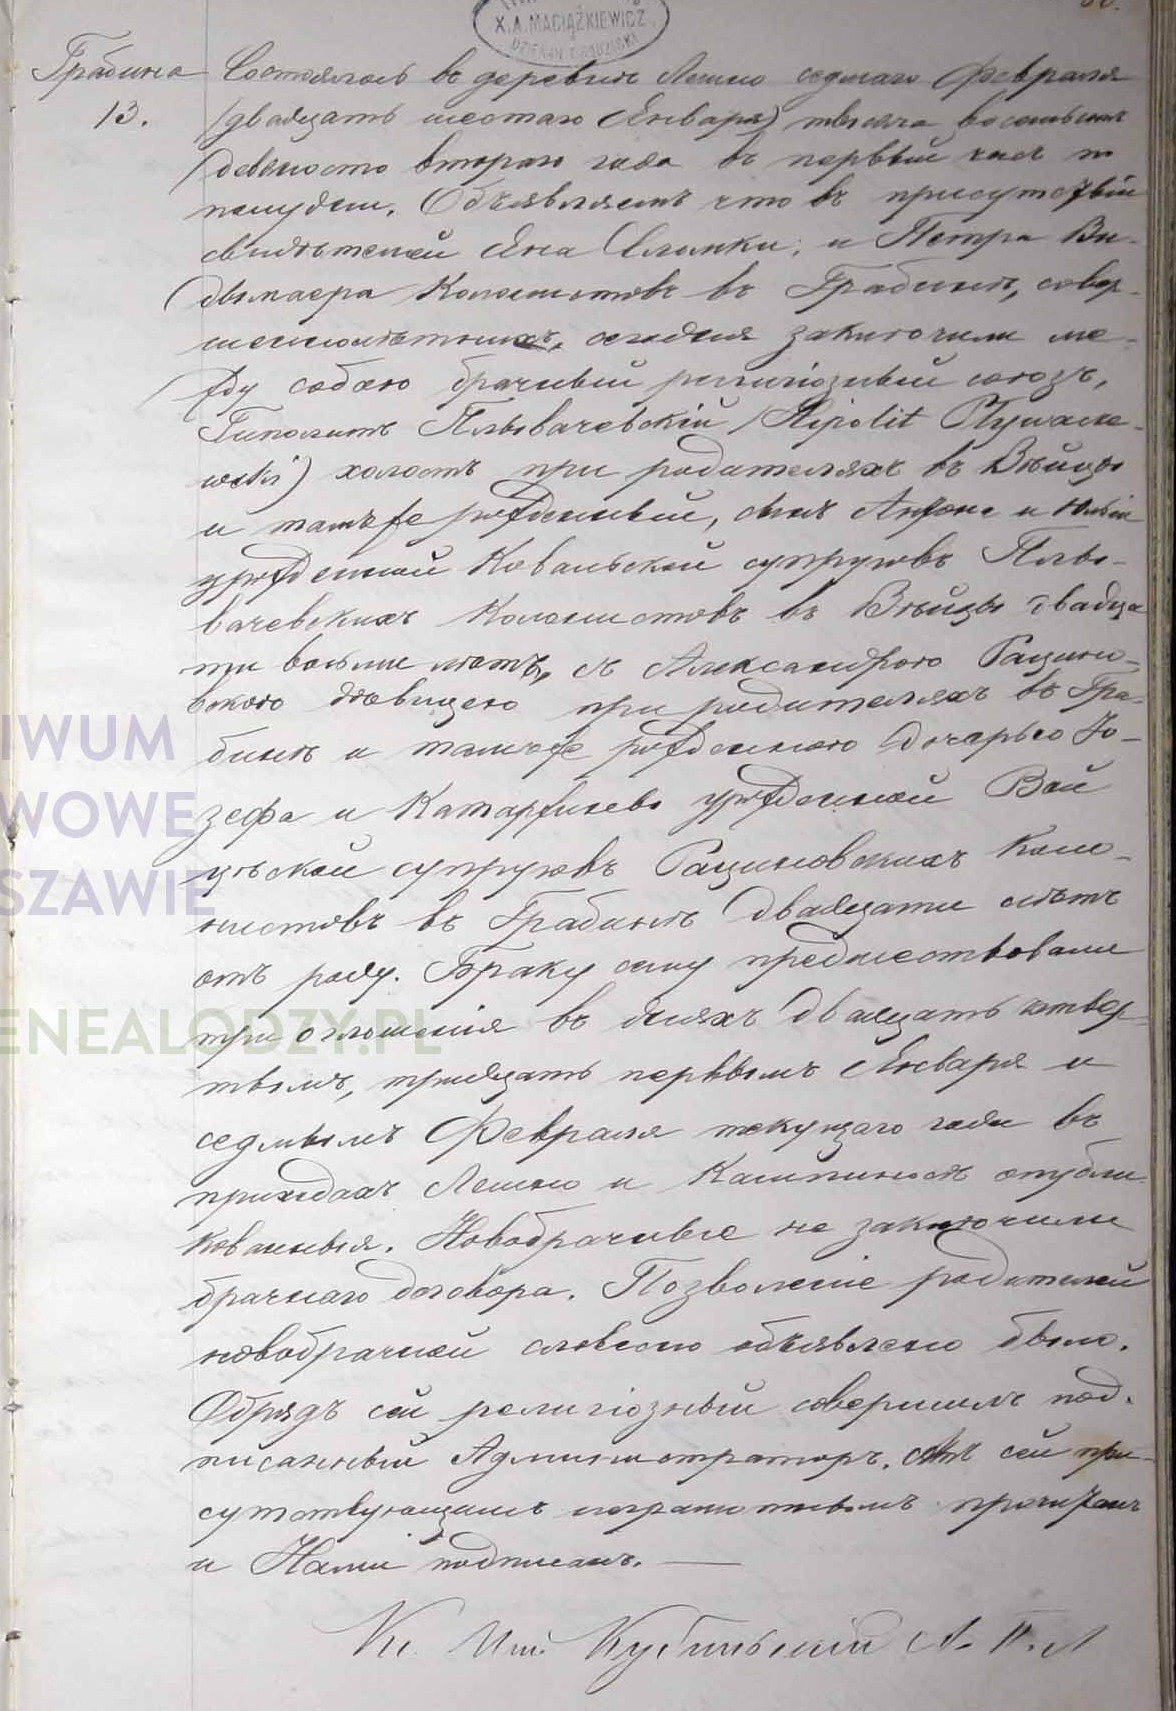 X.A. MACIĄŻKIEWICZ
DZIEKAN
Грабина Состоялось въ деревнѣ Лешно седмаго Февраля
13. /двадцать шестаго Января) тысяча восемьсотъ
девяносто втораго года въ первый часъ по
полудни. Объявляемъ что въ присутствіи
свидѣтелей Яна Сломки, и Петра Ви-
дымаера Колонистовъ въ Грабинѣ, совер-
шеннолѣтнихъ, сегодня заключили ме-
жду собою брачный религіозный союзъ,
Гиполитъ Плывачевскій /Hipolit Pływacze-
wski) холостъ при родителяхъ въ Вѣйцы
и тамъ же рожденный, сынъ Антона и Юліи
урожденной Ковальской супруговъ Плы-
вачевскихъ Колонистовъ въ Вѣйцы двадца
ти восьми лѣтъ, съ Александрою Рацинов-
скою дѣвицею при родителяхъ въ Гра-
бинѣ и тамъ же рожденною дочерью Іо-
зефа и Катаржины урожденной Вой
цѣской супруговъ Рациновскихъ Коло-
нистовъ въ Грабинѣ двадцати лѣтъ
отъ роду. Браку сему предшествовали
три оглошенія въ дняхъ двадцать четвер-
тымъ, тридцать первымъ Января и
седмымъ Февраля текущаго года въ
приходахъ Лешно и Кампиносъ опубли-
кованныя. Новобрачные не заключили
брачнаго договора. Позволеніе родителей
новобрачной словесно объявлено было.
Обрядъ сей религіозный совершилъ под-
писанный Администраторъ. Актъ сей при-
сутствующимъ неграмотнымъ прочитанъ
и Нами подписанъ.
Кс. Кубильскій А. П. Л
IWUM
WOWE
SZAWIE
ENEALODZY.PL